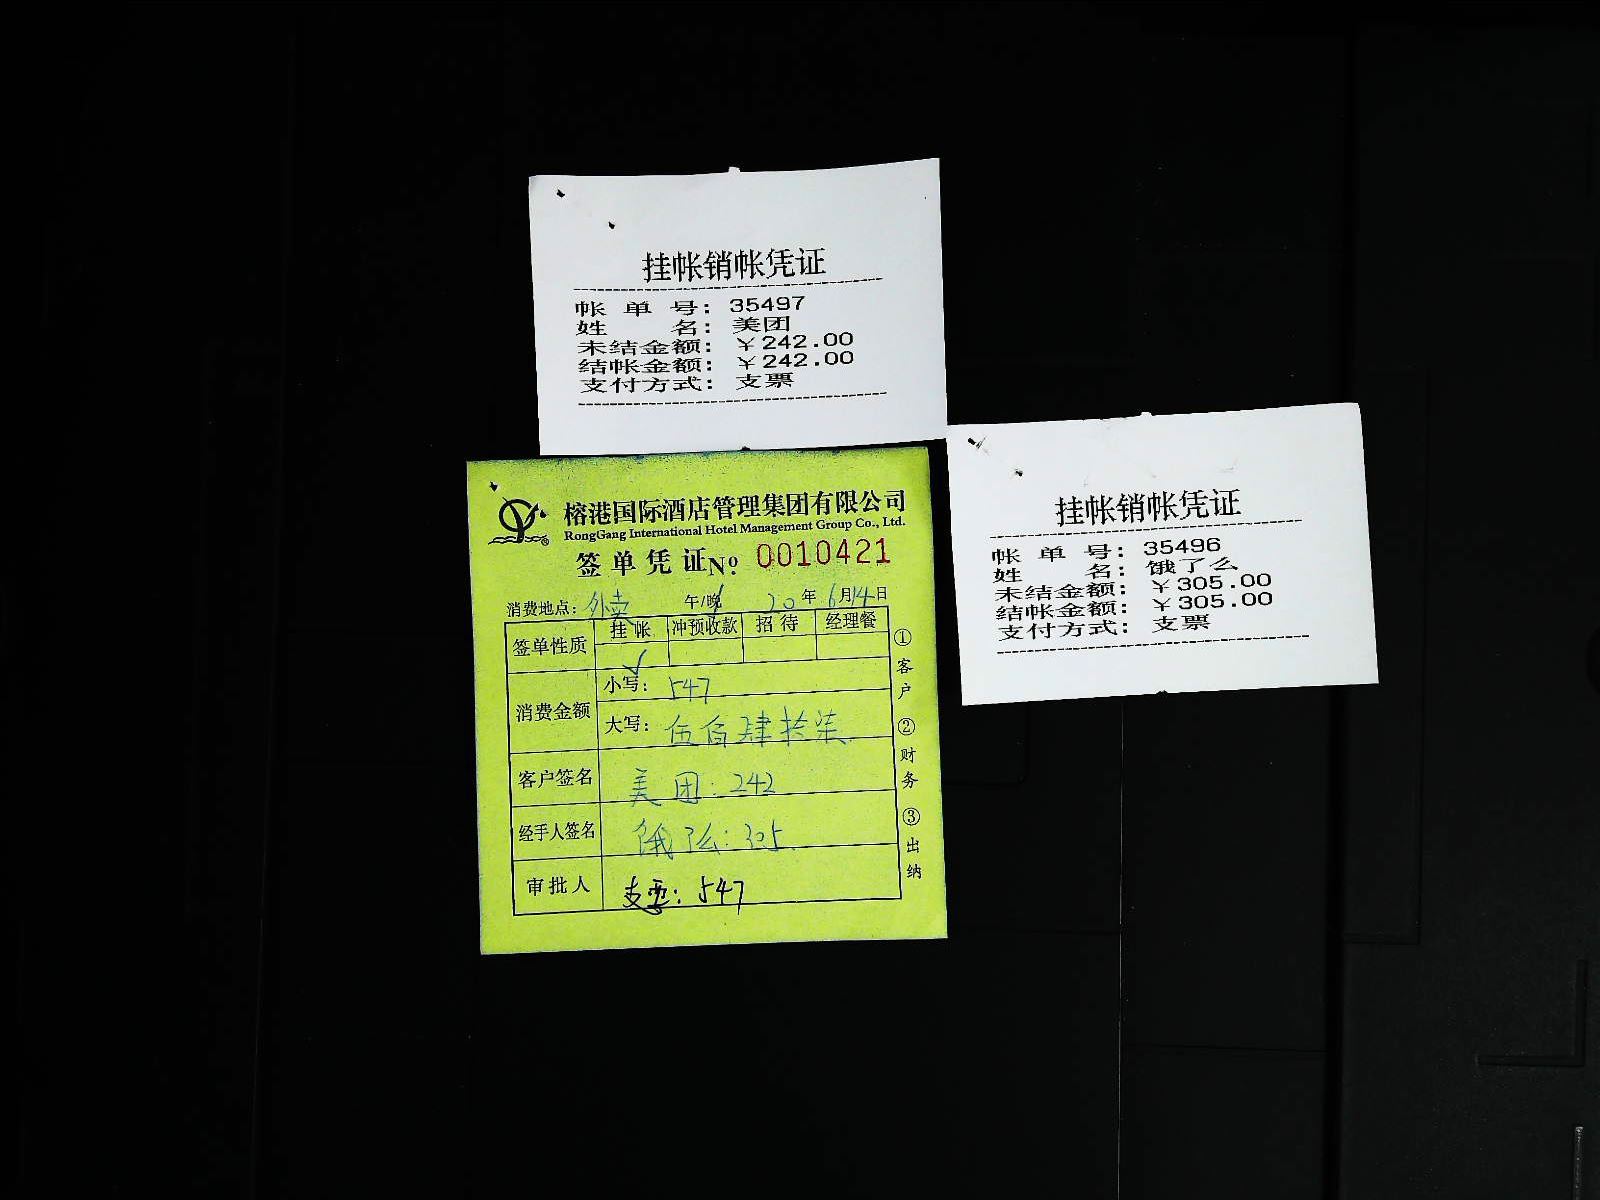 挂帐销帐凭证
帐单号：35497
姓名：美团
未结金额：￥242.00
结帐金额：￥242.00
支付方式：支票
榕港国际酒店管理集团有限公司
RongGang International Hotel Management Group Co., Ltd.
签单凭证 No. 0010421
消费地点：外卖 午/晚 20年6月14日
签单性质 挂帐 冲预收款 招待 经理餐
√
消费金额 小写：547
大写：伍佰肆拾柒
客户签名 美团：242
经手人签名 饿了么：305
审批人 支票：547
①客户 ②财务 ③出纳
挂帐销帐凭证
帐单号：35496
姓名：饿了么
未结金额：￥305.00
结帐金额：￥305.00
支付方式：支票